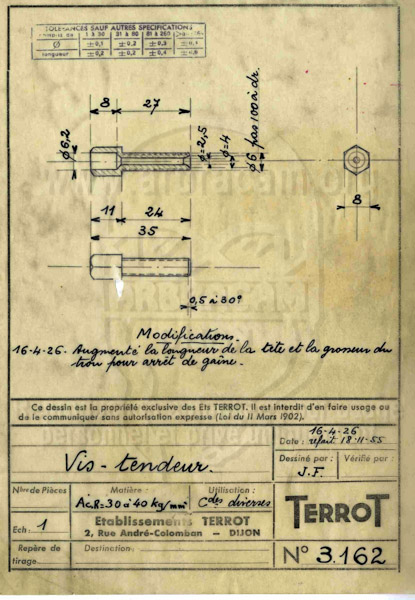 TOLERANCES SAUF AUTRES SPECIFICATIONS
1 à 30 31 à 80 81 à 250
Ø ±0,1 ±0,2 ±0,3
longueur ±0,2
8 27
Ø 6,2
Ø=2,5
Ø=4
Ø 6 pas 100 à dr.
8
11 24
35
0,5 à 30°
Modifications.
16-4-26. Augmenté la longueur de la tête et la grosseur du
trou pour arrêt de gaine.
Ce dessin est la propriété exclusive des Ets TERROT. Il est interdit d'en faire usage ou
de le communiquer sans autorisation expresse (Loi du 11 Mars 1902).
Vis-tendeur.
16-4-26
Date : refait 18-11-55
Dessiné par : Vérifié par :
J.F.
Nbre de Pièces Matière : Utilisation :
Ac.R=30 à 40 kg/mm² Cdes diverses
Ech : 1
Etablissements TERROT
2, Rue André-Colomban — DIJON
TERROT
Repère de
tirage
Destination :
N° 3.162